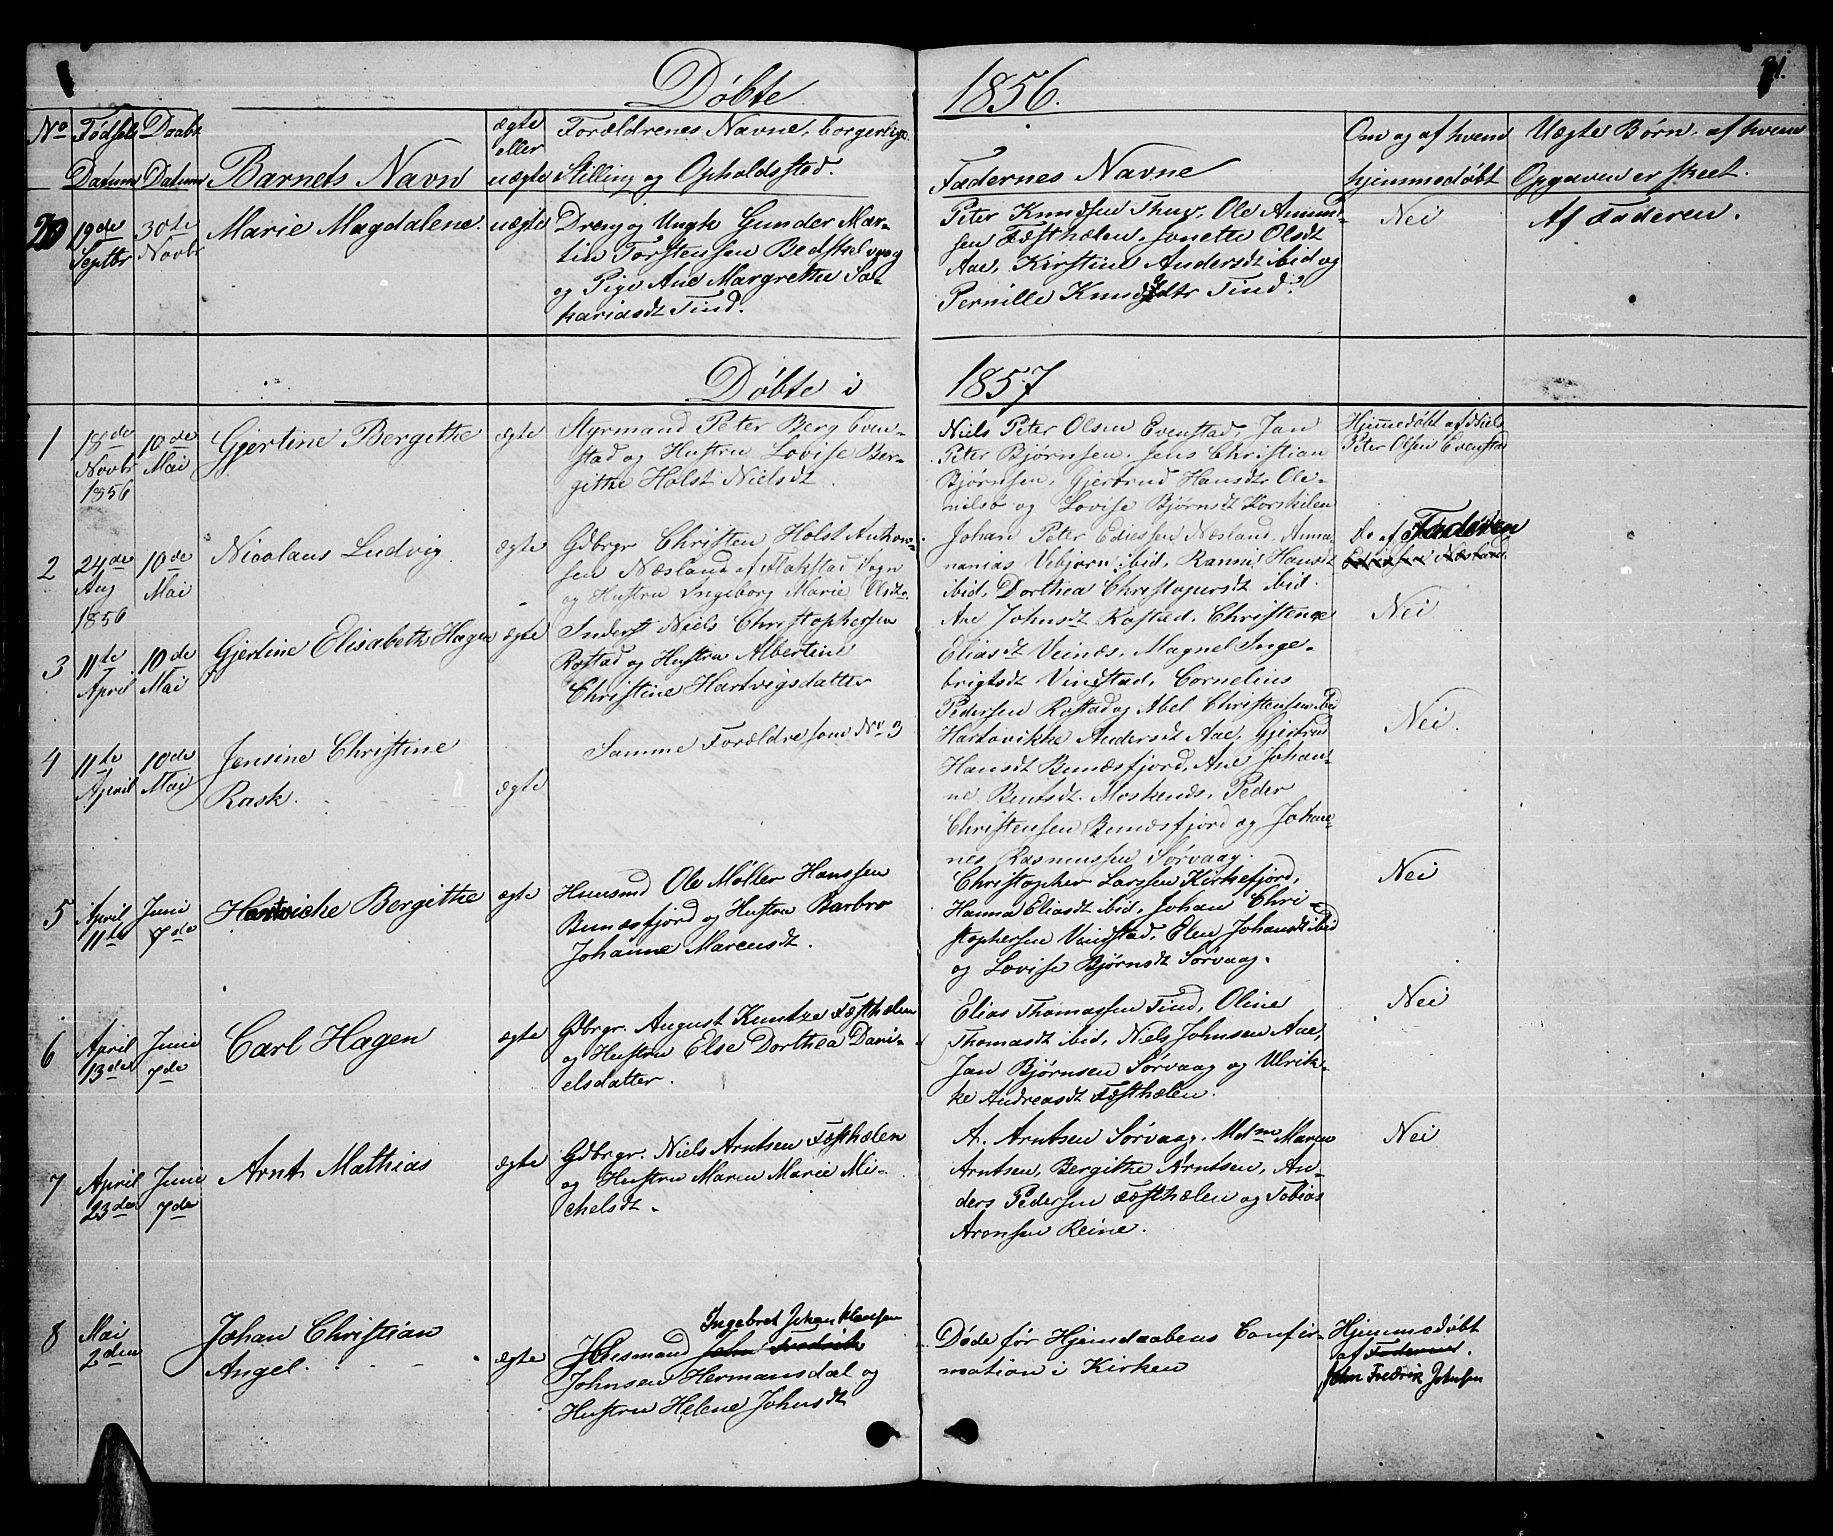 Døbte 1856.
No Fødsels Datum
Daabs Datum
Barnets Navn
ægte eller uægte
Forældrenes Navne, borgerlige
Stilling og Opholdssted.
Fadernes Navne
Om og af hvem
hjemmedøbt
Uægte Børn, af hvem
Opgaven er skeet.
20 19de Septbr
30te Novbr
Marie Magdalene.
uægte
Dreng og Ungk Gunder Mar-
tin Torstensen
og Pige Ane Margrethe Sa-
kariasdt Tind.
Peter Knudsen Ole Amund-
sen Fæsthælen, Jonette Olsdt
Aae, Kirstine Andersdt ibid og
Pernille Knudsdtr Tind.
Nei
Af Faderen.
Døbte i 1857
1 18de Novbr 1856
10de Mai
Gjertine Bergithe
ægte
Styrmand Peter Berg Even-
stad og Hustru Lovise Ber-
githe Holst Nielsdt.
Niels Peter Olsen Evenstad, Jan
Peter Bjørnsen, Jens Christian
Bjørnsen, Gjertrud Hansdt Ole-
nilsø og Lovise Bjørnsdt
Hjemmedøbt af Niels
Peter Olsen Evenstad
2 24de Aug 1856
10de Mai
Nicolaus Ludvig
ægte
Gdbrgr Christen Holst Anthon-
sen Næsland af Flakstad Sogn
og Hustru Ingeborg Marie Olsdtr.
Johan Peter Ediessen Næsland, Anna-
nanias Vebjørn ibid, Ranni Hansdt
ibid, Dorthea Christophersdt ibid.
Do af Faderen
3 11te April
10de Mai
Gjertine Elisabeth Hagen
ægte
Inderst Niels Christophersen
Rostad og Hustru Albertine
Christine Hartvigsdatter
Ane Johnsdt Rostad, Christence
Eliasdt Veinæs, Magnel Inge-
brigtsdt Vindstad, Cornelius
Pedersen Rostad og Abel Christensen ibid
Nei
4 11te April
10de Mai
Jensine Christine
Rask.
ægte
Samme Forældre som No 3
Hartvikke Andersdt Aae, Gjertrud
Hansdt Bunæsfjord, Ane Johan-
ne Bentsdt. Moskenæs, Peder
Christensen Bunæsfjord og Johan-
nes Rasmussen Sørvaag.
Nei.
5 April 11te
Juni 7de
Hartviche Bergithe
ægte
Huusmd Ole Møller Hanssen
Bunæsfjord og Hustru Barbro
Johanne Marensdt.
Christopher Larssen Kirkefjord,
Hanna Eliasdt ibid, Johan Chri-
stophersen Vindstad, Elen Johansdt ibid
og Lovise Bjørnsdt Sørvaag.
Nei
6 April 13de
Juni 7de
Carl Hagen
ægte
Gdbrgr. August Kuntze Fæsthælen
og Hustru Else Dorthea Dani-
elsdatter.
Elias Thomassen Tind, Oline
Thomasdt ibid, Niels Johnsen Aae,
Jan Bjørnsen Sørvaag og Ulrik-
ke Andreasdt Fæsthælen.
Nei
7 April 23de
Juni 7de
Arnt Mathias
ægte
Gdbrgr. Niels Arntsen Fæsthælen
og Hustru Maren Marie Mi-
chelsdt.
A. Arntsen Sørvaag, Mdme Maren
Arntsen, Bergithe Arntsen, An-
ders Pedersen Fæsthælen og Tobias
Aronsen Reine.
Nei
8 Mai 2den
Johan Christian
Angel.
ægte
Ingebret Johan Hansen
Huusmand John Fredrik
Johnsen Hermansdal og
Hustru Helene Johnsdt
Døde før Hjemdaabens Confir-
mation i Kirken
Hjemmedøbt
af Faderen.
John Fredrik Johnsen